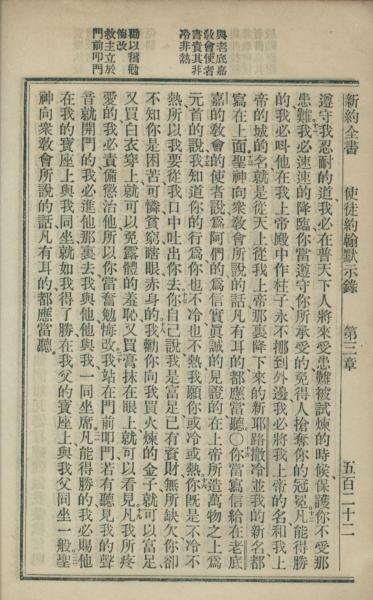 新約全書 使徒約翰默示錄 第三章 五百二十二
與老底嘉
敎會使者
書責其非
冷非熱
勸以奮勉
悔改
救主立於
門前叩門
遵守我忍耐的道我必在普天下人將來受患難被試煉的時候保護你不受那
患難我必速速的降臨你當遵守你所承受的免得人搶奪你的冠冕凡能得勝
的我必叫他在我上帝殿中作柱子永不挪到外邊我必將我上帝的名和我上
帝的城的名就是從天上從我上帝那裏降下來的新耶路撒冷並我的新名都
寫在上面聖神向衆敎會所說的話凡有耳的都應當聽〇你當寫信給在老底
嘉的敎會的使者說爲阿們的爲信實眞誠的見證的在上帝所造萬物之上爲
元首的說我知道你的行爲你也不冷也不熱我願你或冷或熱你旣是不冷不
熱所以我要從我口中吐出你去你自己說我是富足已有資財無所缺欠你卻
不知你是困苦可憐貧窮瞎眼赤身的我勸你向我買火煉的金子就可以富足
又買白衣穿上就可以免露體的羞恥又買膏抹在眼上就可以看見凡我所疼
愛的我必責備懲治他所以你當奮勉悔改我站在門前叩門若有聽見我的聲
音就開門的我必進他那裏去我與他他與我一同坐席凡能得勝的我必賜他
在我的寶座上與我同坐就如我得了勝在我父的寶座上與我父同坐一般聖
神向衆敎會所說的話凡有耳的都應當聽。